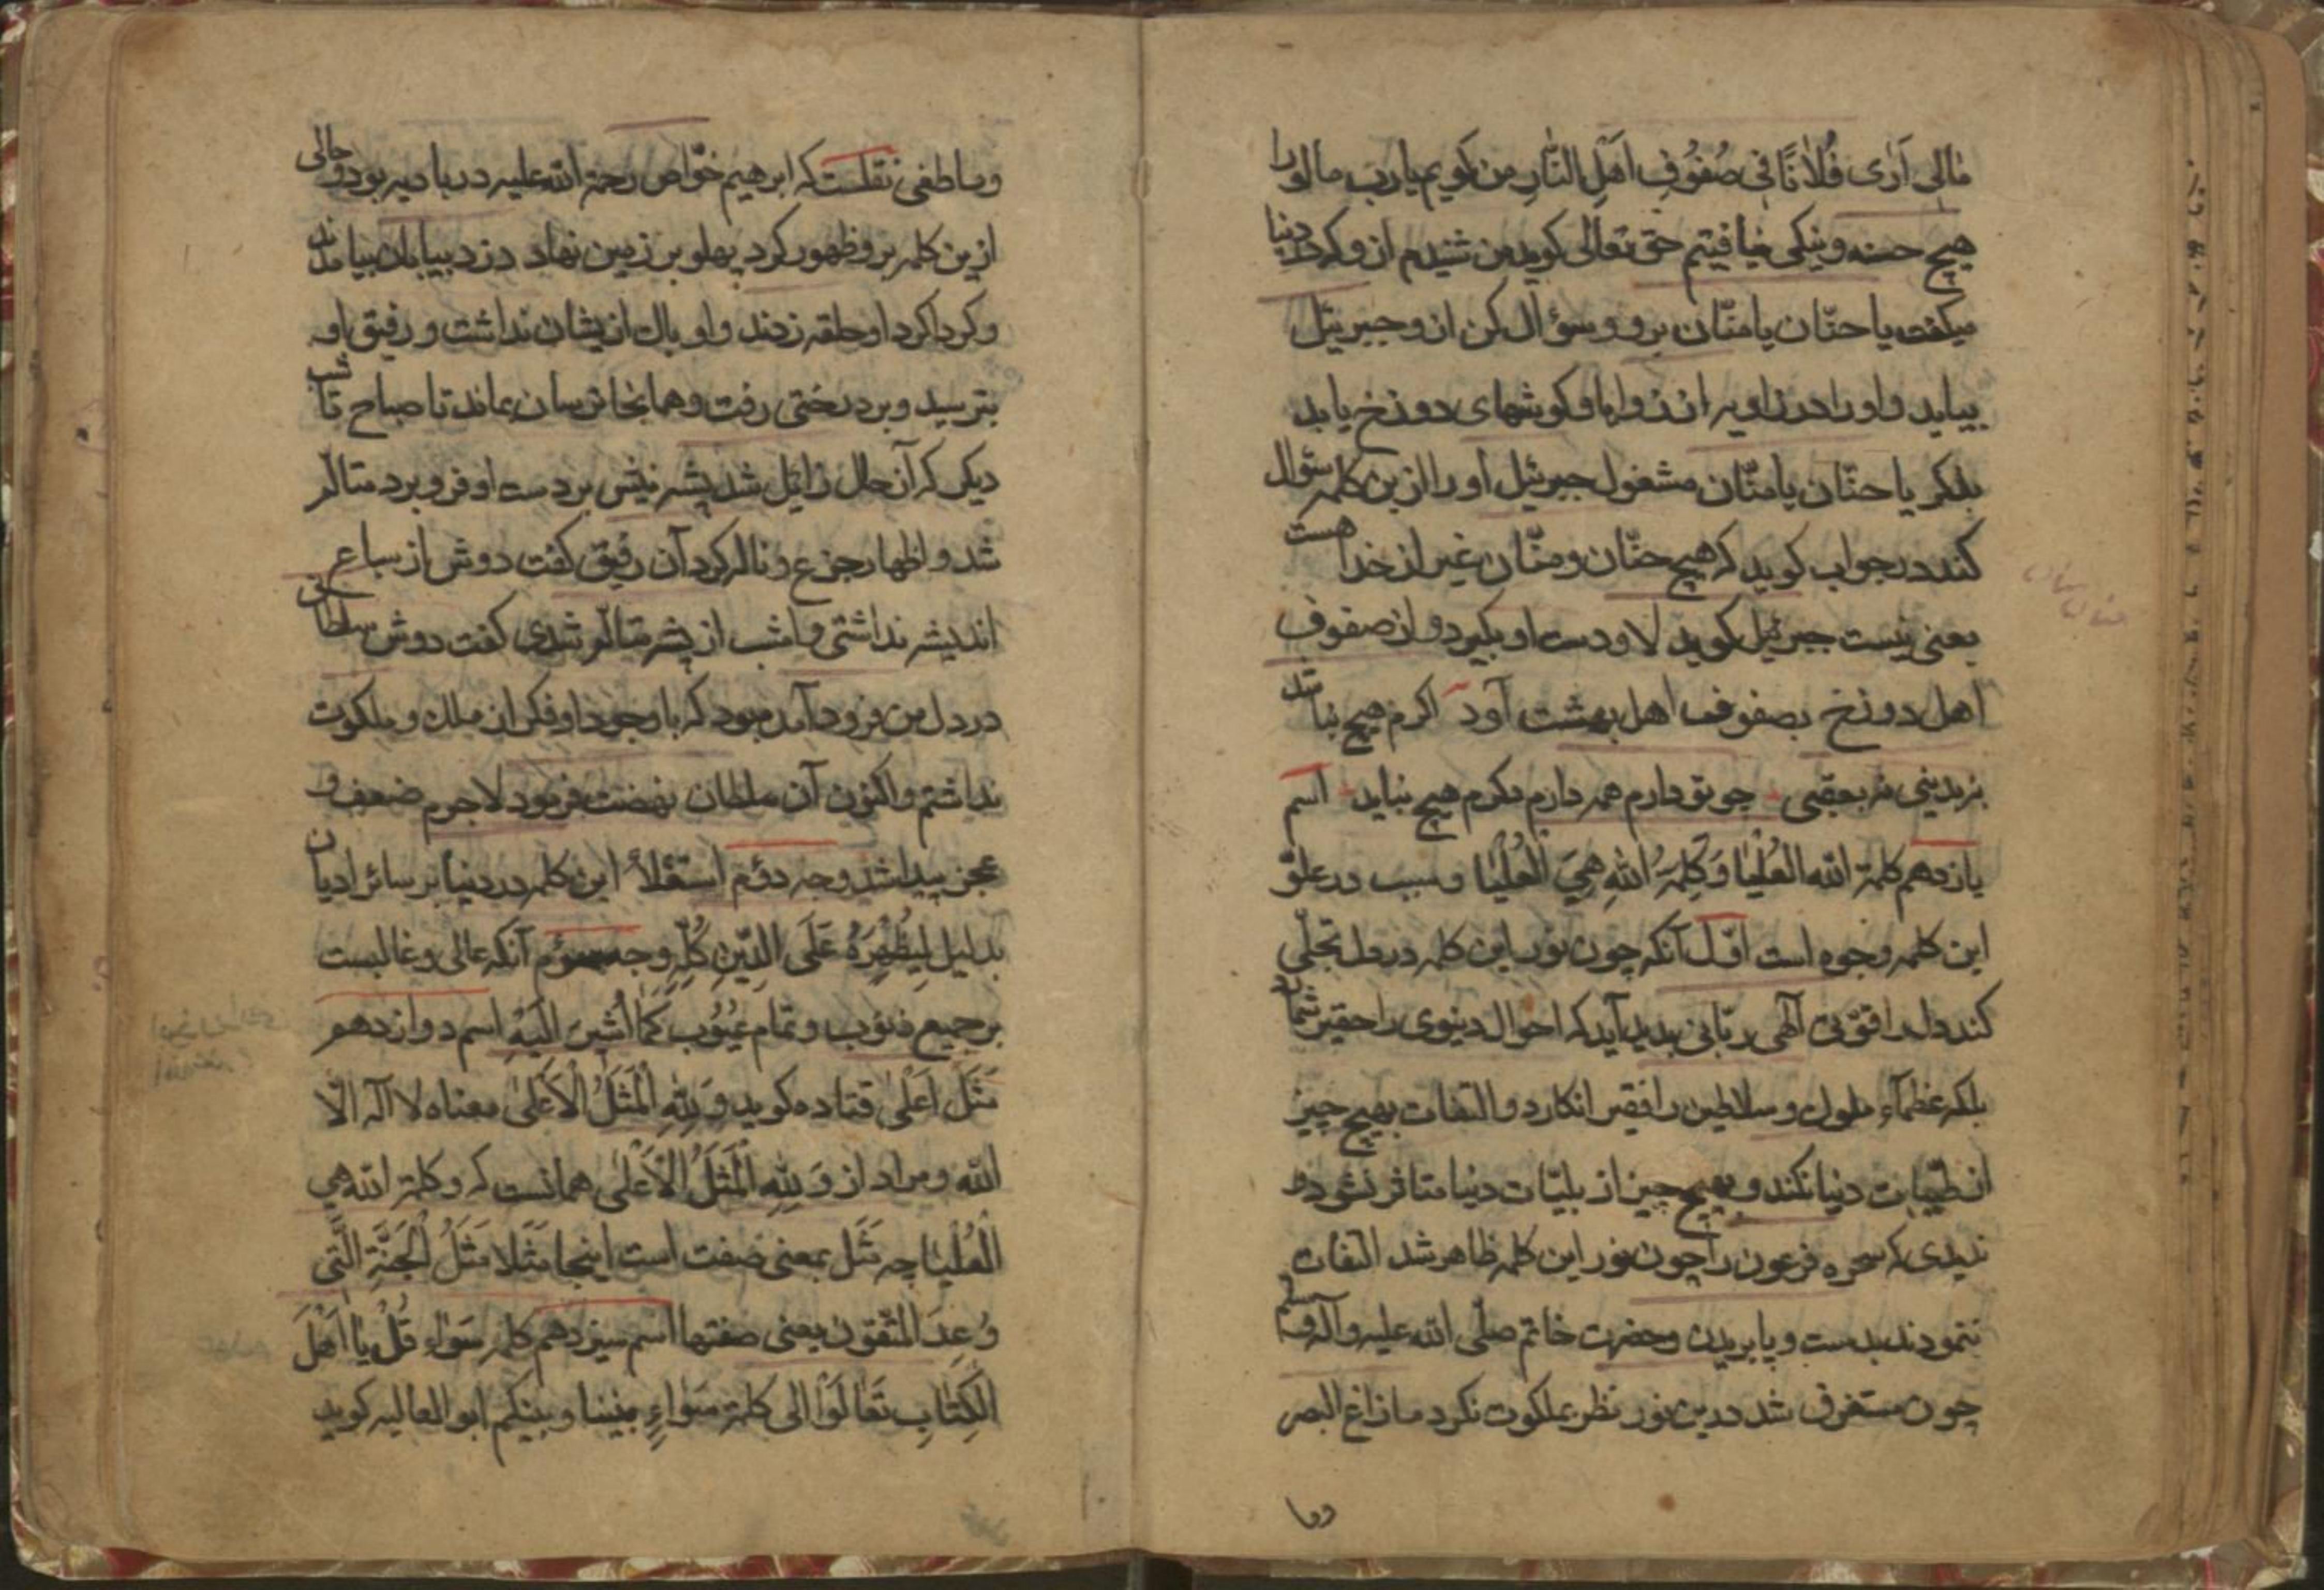 مٰالی اَرٰی فُلٰانًا فی صُفُوفِ اَهْلِ النّٰارِ من کویم یا رب ما له را
هیچ حسنه و نیکی نیافتیم حق تعالی کوید من شنیدم از و که در دنیا
میکفت یا حنّان یا منّان برو و سؤال کن ازو جبریئل
بیاید و او را در زاویه از زوایا و کوشهای دوزخ یابد
بذکر یا حنّان یا منّان مشغول جبریئل او را ازین کلمه سئوال
کند در جواب کوید که هیچ حنّان و منّان غیر از خدا هست
یعنی نیست جبرئیل کوید لا و دست او بکیرد و از صفوف
اهل دوزخ بصفوف اهل بهشت آورد اکرم هیچ نباشد
نه بدینی نه بعقبی چو تو دارم همه دارم دکرم هیچ نباید اسم
یازدهم کلمة الله العُلْیٰا وَ کَلِمَةُ اللهِ هِیَ الْعُلْیٰا و سبب در علوّ
این کلمه وجوه است اوّل آنکه چون نور این کلمه در دل تجلّی
کند دل را قوّتی آلهی ربّانی بدید آید که احوال دینوی را حقیر شمارد
بلکه عظمآء ملوك و سلاطین را فقیر انکارد و التفات بهیچ چیز
از طیّبات دنیا نکند و بهیچ چیز از بلیّات دنیا متاثر نشود
ندیدی که سحره فرعون را چون نور این کلمه ظاهر شد التفات
ننمودند بدست و پا بریدن و حضرت خاتم صلّی الله علیه و آله و سلم
چون مستغرق شد درین نور نظر بملکوت نکرد ما زاغ البصر
وما طغی نقلست که ابرهیم خوّاص رحمة الله علیه در بادیه بود و حالی
ازین کلمه برو ظهور کرد پهلو بر زمین نهاد دزد بیابان بیامدند
و کرداکرد او حلقه زدند و او باك ازیشان نداشت و رفیق او
بترسید و بر درختی رفت و همانجا ترسان بماند تا صباح تا شب
دیکر که آن حال زائل شد پشه نیش بر دست او فرو برد متالّم
شد و اظهار جزع و ناله کرد آن رفیق کفت دوش از سباع
اندیشه نداشتی و امشب از پشه متالّم شدی کفت دوش سلطانی
در دل من فرود آمده بود که با وجود او فکر از ملك و ملکوت
نداشتم و اکنون آن سلطان نهضت فرمود لاجرم ضعف و
عجز پیدا شد وجه دوّم استعلاءً این کلمه در دنیا بر سائر ادیان
بدلیل لِیُظْهِرَهُ عَلَی الدّینِ کُلِّهِ وجه سوّم آنکه عالی و غالبست
بر جمیع ذنوب و تمام عُیُوب کَمٰا اُشیرَ اِلَیْهِ اسم دوازدهم
مَثَل اَعْلٰی قتاده کوید وَ لِلّٰهِ الْمَثَلُ الْاَعْلیٰ معناه لا اله الّا
الله و مراد از وَ لِلّٰهِ الْمَثَلُ الْاَعْلٰی همانست که و کلمة الله هی
الْعُلْیٰا چه مَثَل بمعنی صفت است اینجا مَثَلا مَثَلُ الْجَنَّةِ الَّتی
وُعِدَ الْمُتَّقُون یعنی صفتها اسم سیزدهم کلمه سَوٰاء قُلْ یٰا اَهْلَ
الْکِتٰابِ تَعٰالَوْا الی کلمة سَوٰاءٍ بیننا و بینکم ابو العالیه کوید